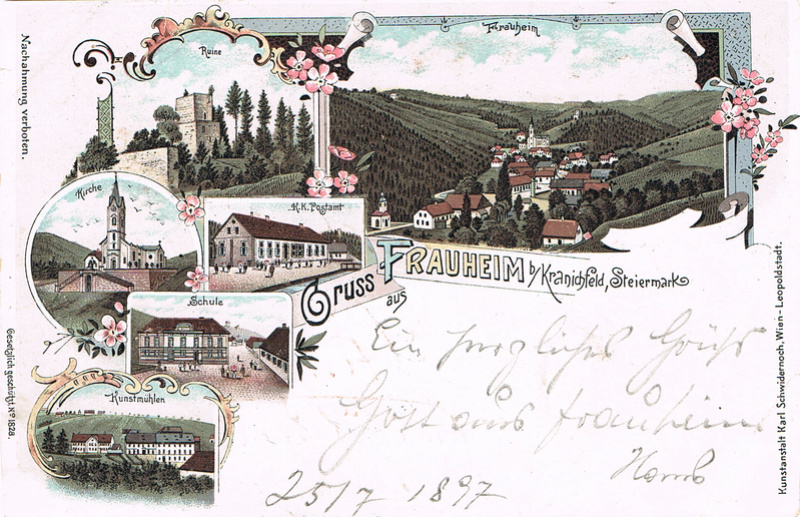 Nachahmung verboten.
Ruine
Frauheim
Kirche
K.K. Postamt
Schule
Kunstmühlen
Gruss aus
FRAUHEIM b/Kranichfeld, Steiermark
Ein herzliches Grüß
Gott aus Frauheim
25/7 1897
Gesetzlich geschützt No 1828.
Kunstanstalt Karl Schwidernoch, Wien-Leopoldstadt.